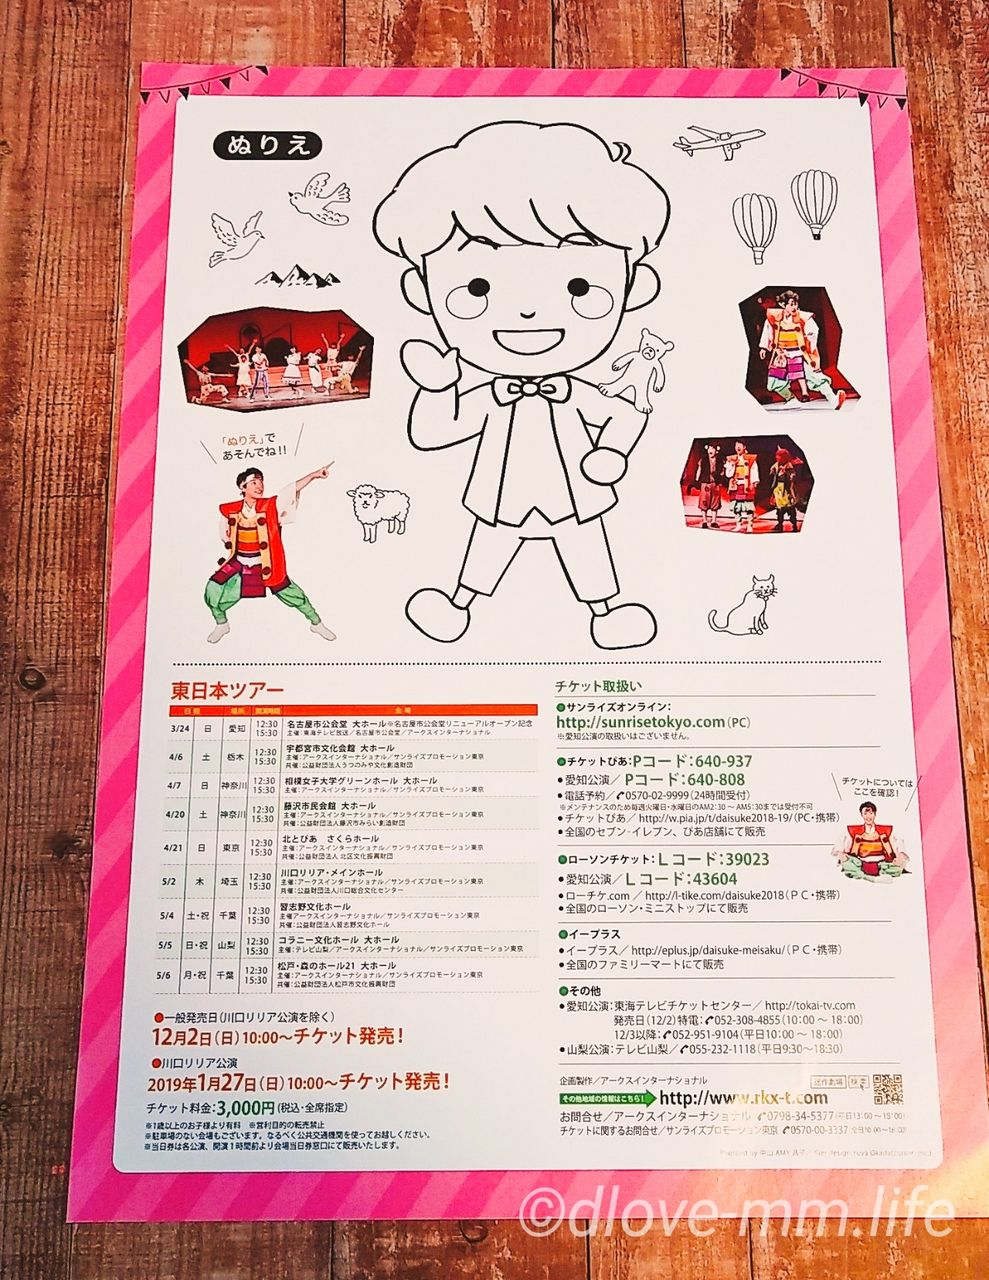 ぬりえ
「ぬりえ」で
あそんでね!!
東日本ツアー
日程 場所 開演時間 会場
3/24 日 愛知 12:30 15:30 名古屋市公会堂 大ホール※名古屋市公会堂リニューアルオープン記念
主催:東海テレビ放送／名古屋市公会堂／アークスインターナショナル
4/6 土 栃木 12:30 15:30 宇都宮市文化会館 大ホール
主催:アークスインターナショナル／サンライズプロモーション東京
共催:公益財団法人うつのみや文化創造財団
4/7 日 神奈川 12:30 15:30 相模女子大学グリーンホール 大ホール
主催:アークスインターナショナル／サンライズプロモーション東京
4/20 土 神奈川 12:30 15:30 藤沢市民会館 大ホール
主催:アークスインターナショナル／サンライズプロモーション東京
共催:公益財団法人藤沢市みらい創造財団
4/21 日 東京 12:30 15:30 北とぴあ さくらホール
主催:アークスインターナショナル／サンライズプロモーション東京
共催:公益財団法人 北区文化振興財団
5/2 木 埼玉 12:30 15:30 川口リリア・メインホール
主催:アークスインターナショナル／サンライズプロモーション東京
共催:公益財団法人川口総合文化センター
5/4 土・祝 千葉 12:30 15:30 習志野文化ホール
主催アークスインターナショナル／サンライズプロモーション東京
共催:公益財団法人習志野文化ホール
5/5 日・祝 山梨 12:30 15:30 コラニー文化ホール 大ホール
主催:テレビ山梨／アークスインターナショナル／サンライズプロモーション東京
5/6 月・祝 千葉 12:30 15:30 松戸・森のホール21 大ホール
主催:アークスインターナショナル／サンライズプロモーション東京
共催:公益財団法人松戸市文化振興財団
●一般発売日(川口リリア公演を除く)
12月2日(日)10:00〜チケット発売!
●川口リリア公演
2019年1月27日(日)10:00〜チケット発売!
チケット料金:3,000円(税込・全席指定)
※1歳以上のお子様より有料 ※営利目的の転売禁止
※駐車場のない会場もございます。なるべく公共交通機関を使ってお越しください。
※当日券は各公演、開演1時間前より会場当日券窓口にて販売いたします。
チケット取扱い
●サンライズオンライン:
http://sunrisetokyo.com(PC)
※愛知公演の取扱いはございません。
●チケットぴあ:Pコード:640-937
●愛知公演／Pコード:640-808
●電話予約／0570-02-9999(24時間受付)
※メンテナンスのため毎週火曜日・水曜日のAM2:30〜AM5:30までは受付不可
●チケットぴあ／http://w.pia.jp/t/daisuke2018-19/(PC・携帯)
●全国のセブン-イレブン、ぴあ店舗にて販売
チケットについては
ここを確認!
●ローソンチケット:Lコード:39023
●愛知公演／Lコード:43604
●ローチケ.com／http://l-tike.com/daisuke2018(PC・携帯)
●全国のローソン・ミニストップにて販売
●イープラス
●イープラス／http://eplus.jp/daisuke-meisaku/(PC・携帯)
●全国のファミリーマートにて販売
●その他
●愛知公演:東海テレビチケットセンター／http://tokai-tv.com
発売日(12/2)特電:052-308-4855(10:00〜18:00)
12/3以降:052-951-9104(平日10:00〜18:00)
●山梨公演:テレビ山梨／055-232-1118(平日9:30〜18:30)
企画製作／アークスインターナショナル
迷作劇場 検索
その他地域の情報はこちら! http://www.rkx-t.com
お問合せ／アークスインターナショナル 0798-34-5377(平日13:00〜18:00)
チケットに関するお問合せ／サンライズプロモーション東京 0570-00-3337(全日10:00〜18:00)
©dlove-mm.life